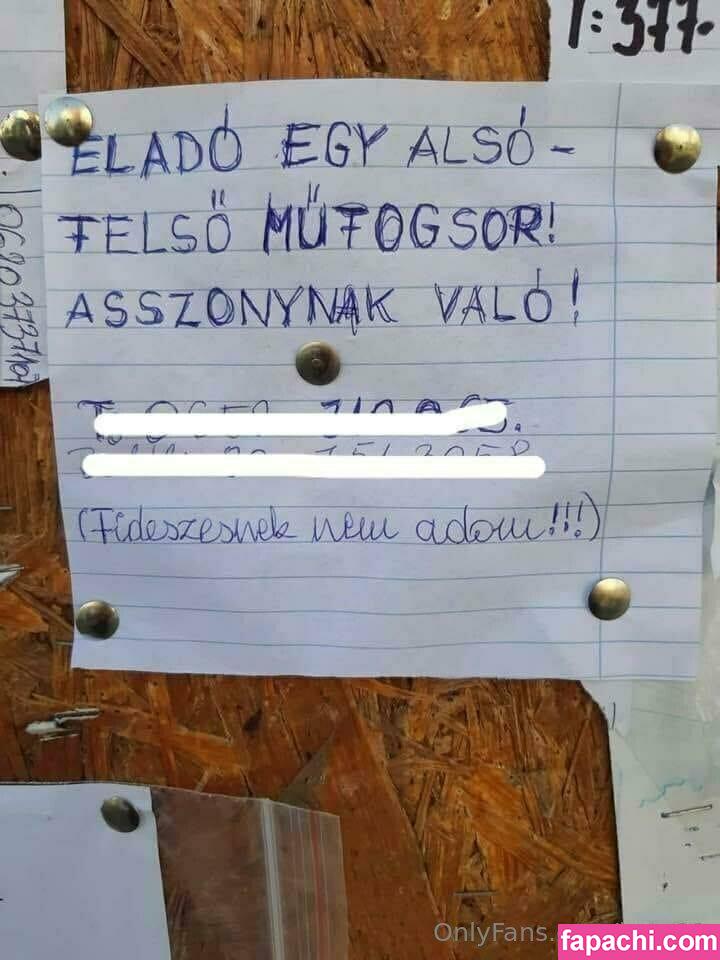 T: 377-
ELADÓ EGY ALSÓ-
FELSŐ MŰFOGSOR!
ASSZONYNAK VALÓ!
(Fideszesnek nem adom!!!)
OnlyFans.
fapachi.com